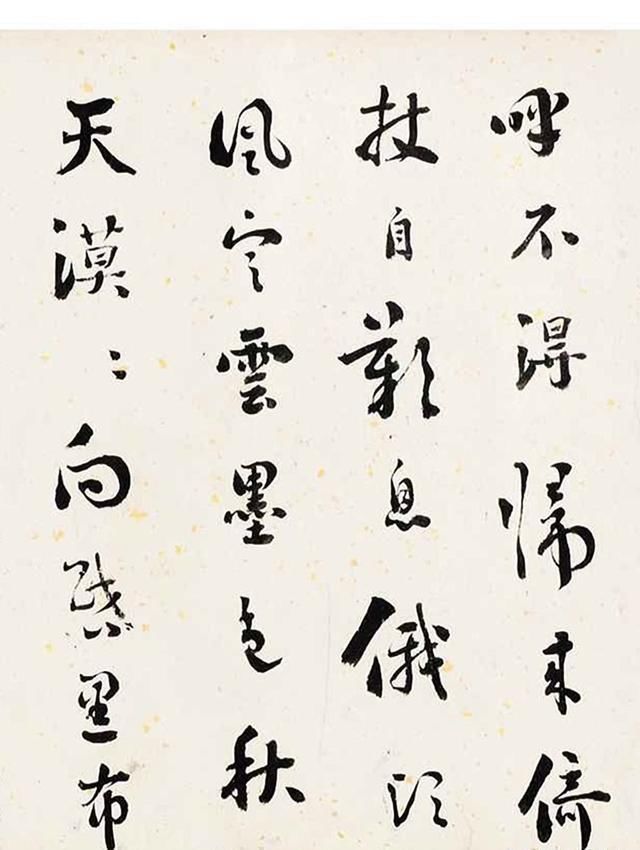 呼不得歸來倚
杖自歎息俄頃
風定雲墨色秋
天漠〻向昏黑布